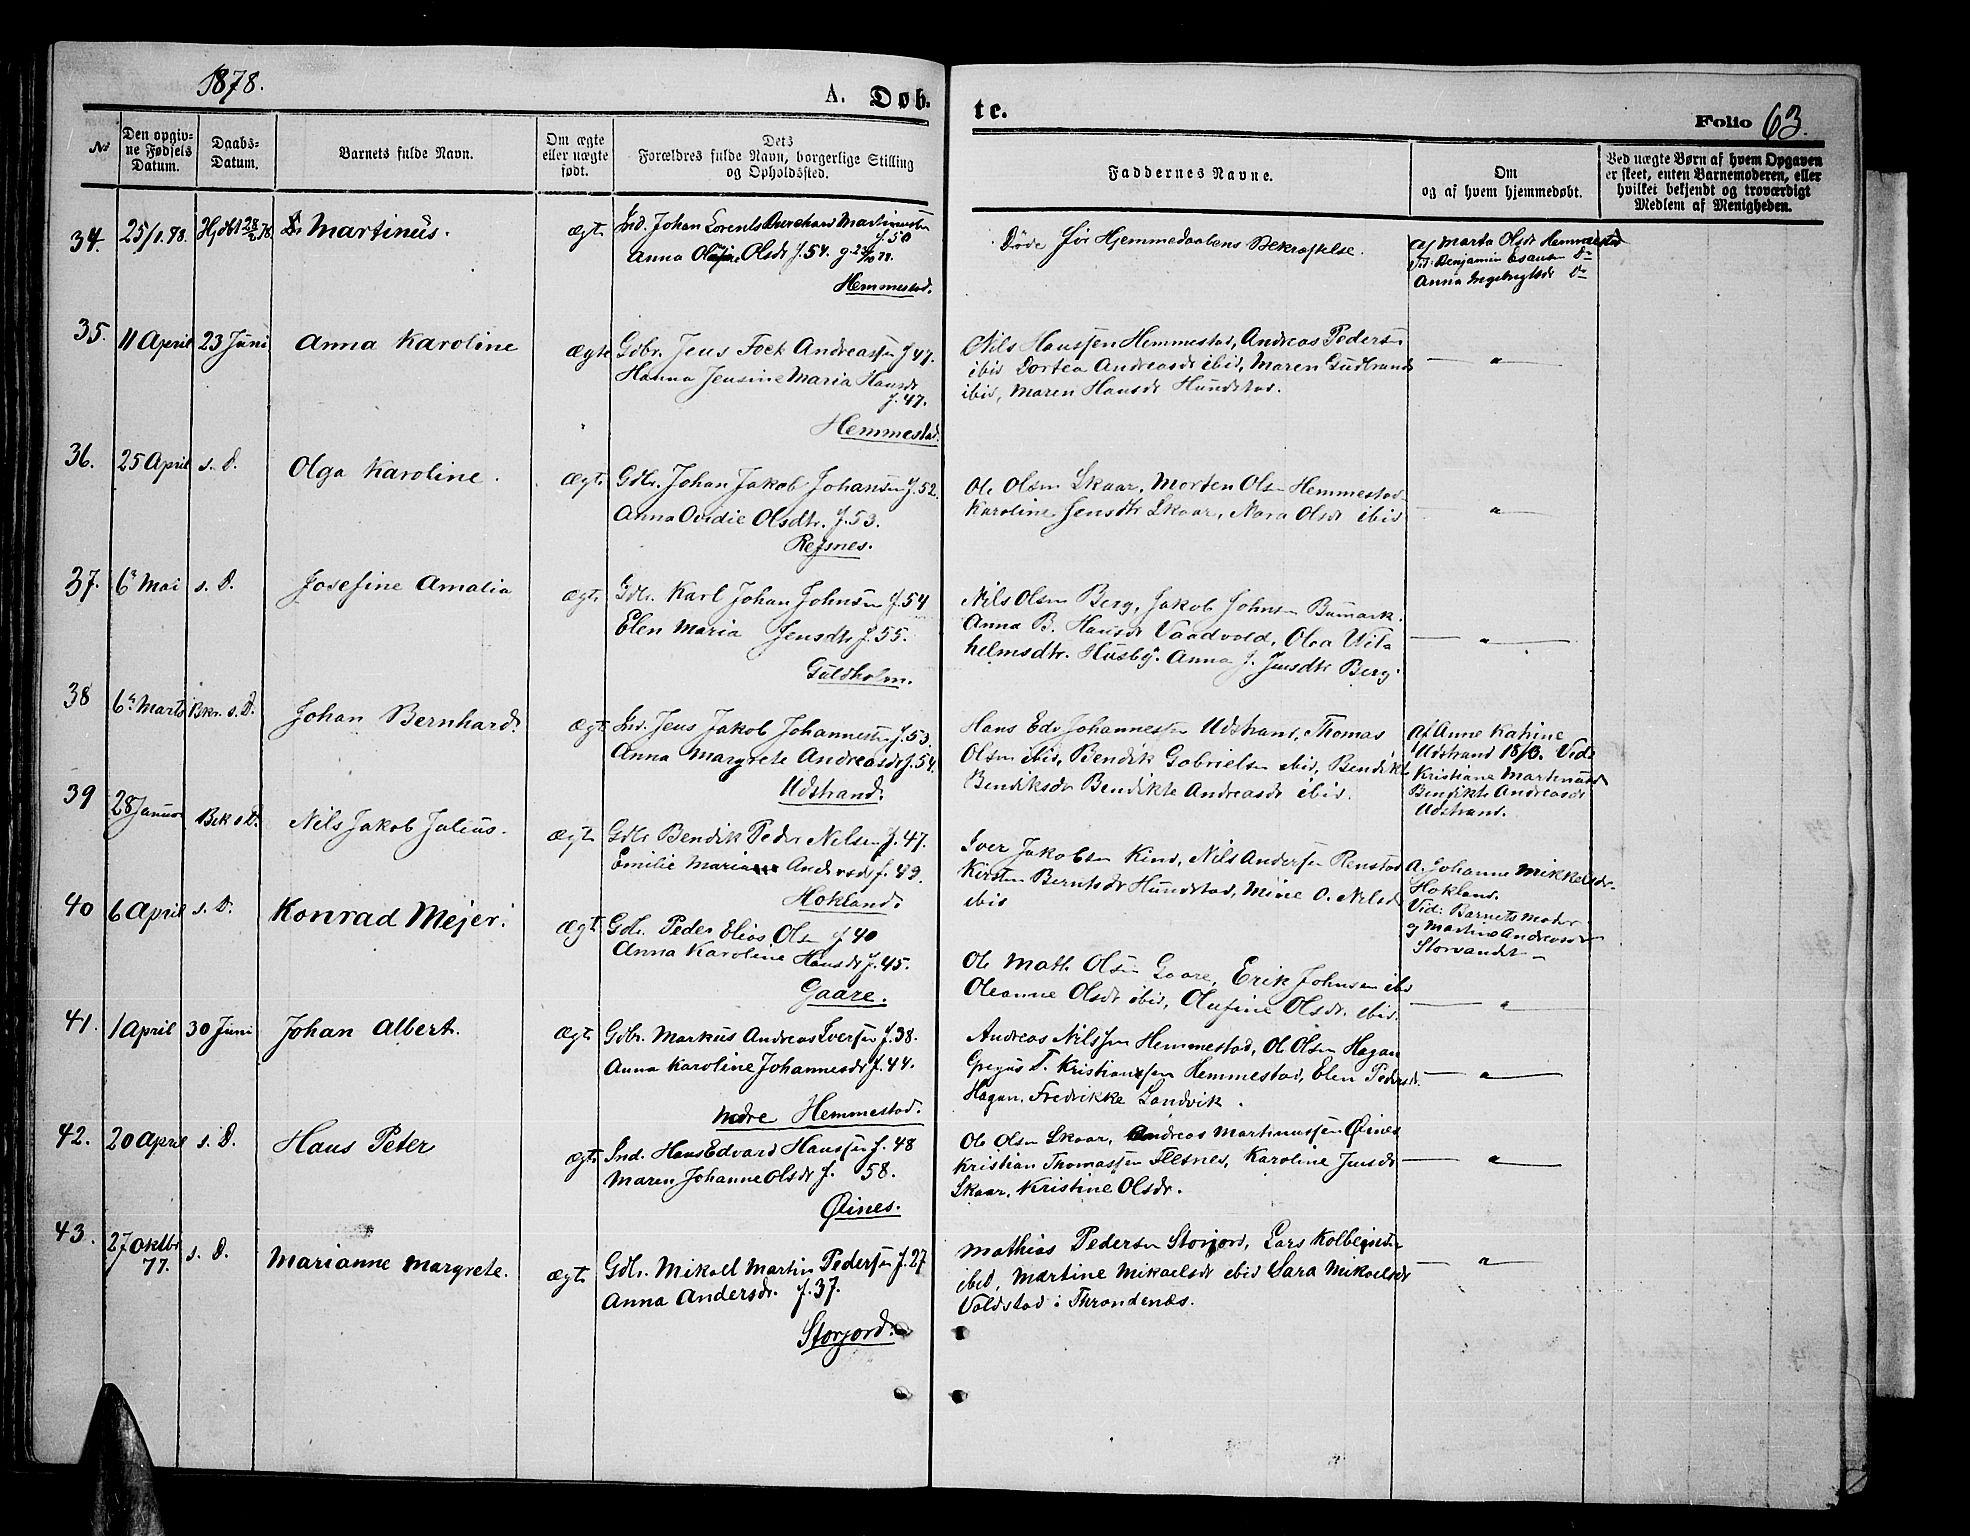 1878.
A. Døb-
te.
Folio 63.
No
Den opgiv-
ne Fødsels
Datum.
Daabs-
Datum.
Barnets fulde Navn.
Om ægte
eller uægte
født.
Dets
Forældres fulde Navn, borgerlige Stilling
og Opholdssted.
Faddernes Navne.
Om
og af hvem hjemmedøbt.
Ved uægte Børn af hvem Opgaven
er skeet, enten Barnemoderen, eller
hvilket bekjendt og troværdigt
Medlem af Menigheden.
34. 25/1.78. Martinus. ægt.
Ind. Johan Lorents Burchard Martinussen
f. 50
Anna Olsdr f. 54.
Hemmestad.
Døde før Hjemmedaabens Bekræftelse.
af Marta Olsdr Hemmestad
Vid: Benjamin Esausen Do
Anna Ingebrigtsdr Do
35. 11 April 23 Juni Anna Karoline ægte
Gdbr. Jens Fock Andreassen f 47.
Hanna Jensine Maria Hansdr
f. 47.
Hemmestad.
Nils Hanssen Hemmestad, Andreas Pedersen
ibid Dortea Andreasdr ibid, Maren Gudbrands
ibid, Maren Hansdr Hundstad.
— " —
36. 25 April s. D. Olga Karoline. ægt.
Gdbr. Johan Jakob Johansen f. 52.
Anna Ovidie Olsdtr. f. 53.
Refsnes.
Ole Olsen Skaar, Morten Olsen Hemmestad
Karoline Jensdtr Skaar, Mara Olsdr ibid
— " —
37. 6 Mai s. D. Josefine Amalia ægt.
Gdbr. Karl Johan Johnsen f. 54
Elen Maria Jensdtr f. 55.
Guldholm.
Nils Olsen Berg, Jakob Johnsen Bumark.
Anna B. Hansdr Vaadvold, Olea Wil-
helmsdtr. Husby. Anna J. Jensdtr Berg.
— " —
38 6 Marts Bkr. s. D. Johan Bernhard. ægt.
Ind. Jens Jakob Johannessen f. 53.
Anna Margrete Andreasdr f. 54.
Udstrand.
Hans Edv Johannessen Udstrand, Thomas
Olsen ibid, Bendik Gabrielsen ibid, Bendikte
Bendiksdr Bendikte Andreasdr ibid.
af Anne Katrine
Udstrand 18/3. Vide
Kristiane Martinusd
Bendikte Andreasdr
Udstrand.
39 28 Januar Bek s D. Nils Jakob Julius. ægt.
Gdbr Bendik Peder Nilsen f. 47.
Emilie Maria Andersdr f. 49.
Hokland.
Iver Jakobsen Kind, Nils Andersen Renstad
Kirsten Berntsdr Hundstad, Mine O. Nilsdr
ibid
A. Johanne Mikkelsdr.
Hokland.
Vid: Barnets Moder
og Martine Andreasdr
Storvandet
40 6 April s. D. Konrad Mejer. ægt.
Gdbr. Peder Elias Olsen f 40
Anna Karoline Hansdr f. 45.
Gaare.
Ole Math. Olsen Gaare, Erik Johnsen ibd
Oleanne Olsdr ibid, Olufine Olsdr. ibid.
— " —
41. 1 April 30 Juni Johan Albert. ægt.
Gdbr. Markus Andreas Iversen f. 38.
Anna Karoline Johannesdr f. 44.
nedre Hemmestad.
Andreas Nilssen Hemmestad, Ole Olsen Hagan
Gregus T. Kristianssen Hemmestad, Elen Pedersd.
Hagan, Fredrikke Sandvik.
— " —
42. 20 April s. D. Hans Peter ægt.
Ind. Hans Edvard Hanssen f. 48
Maren Johanne Olsdr f. 58.
Øines.
Ole Olsen Skaar, Andreas Martinussen Øines
Kristian Thomassen Flesnes, Karoline Jensdr
Skaar, Kristine Olsdr.
— " —
43. 27 Oktbr 77. s. D. Marianne Margrete. ægt.
Gdbr. Mikall Martin Pedersen f. 27
Anna Andersdr. f. 37.
Storjord.
Mathias Pedersen Storjord, Lars Kolbeinsen
ibid, Martine Mikaelsdr ibid Sara Mikaelsdr
Voldstad i Throndenæs.
— " —